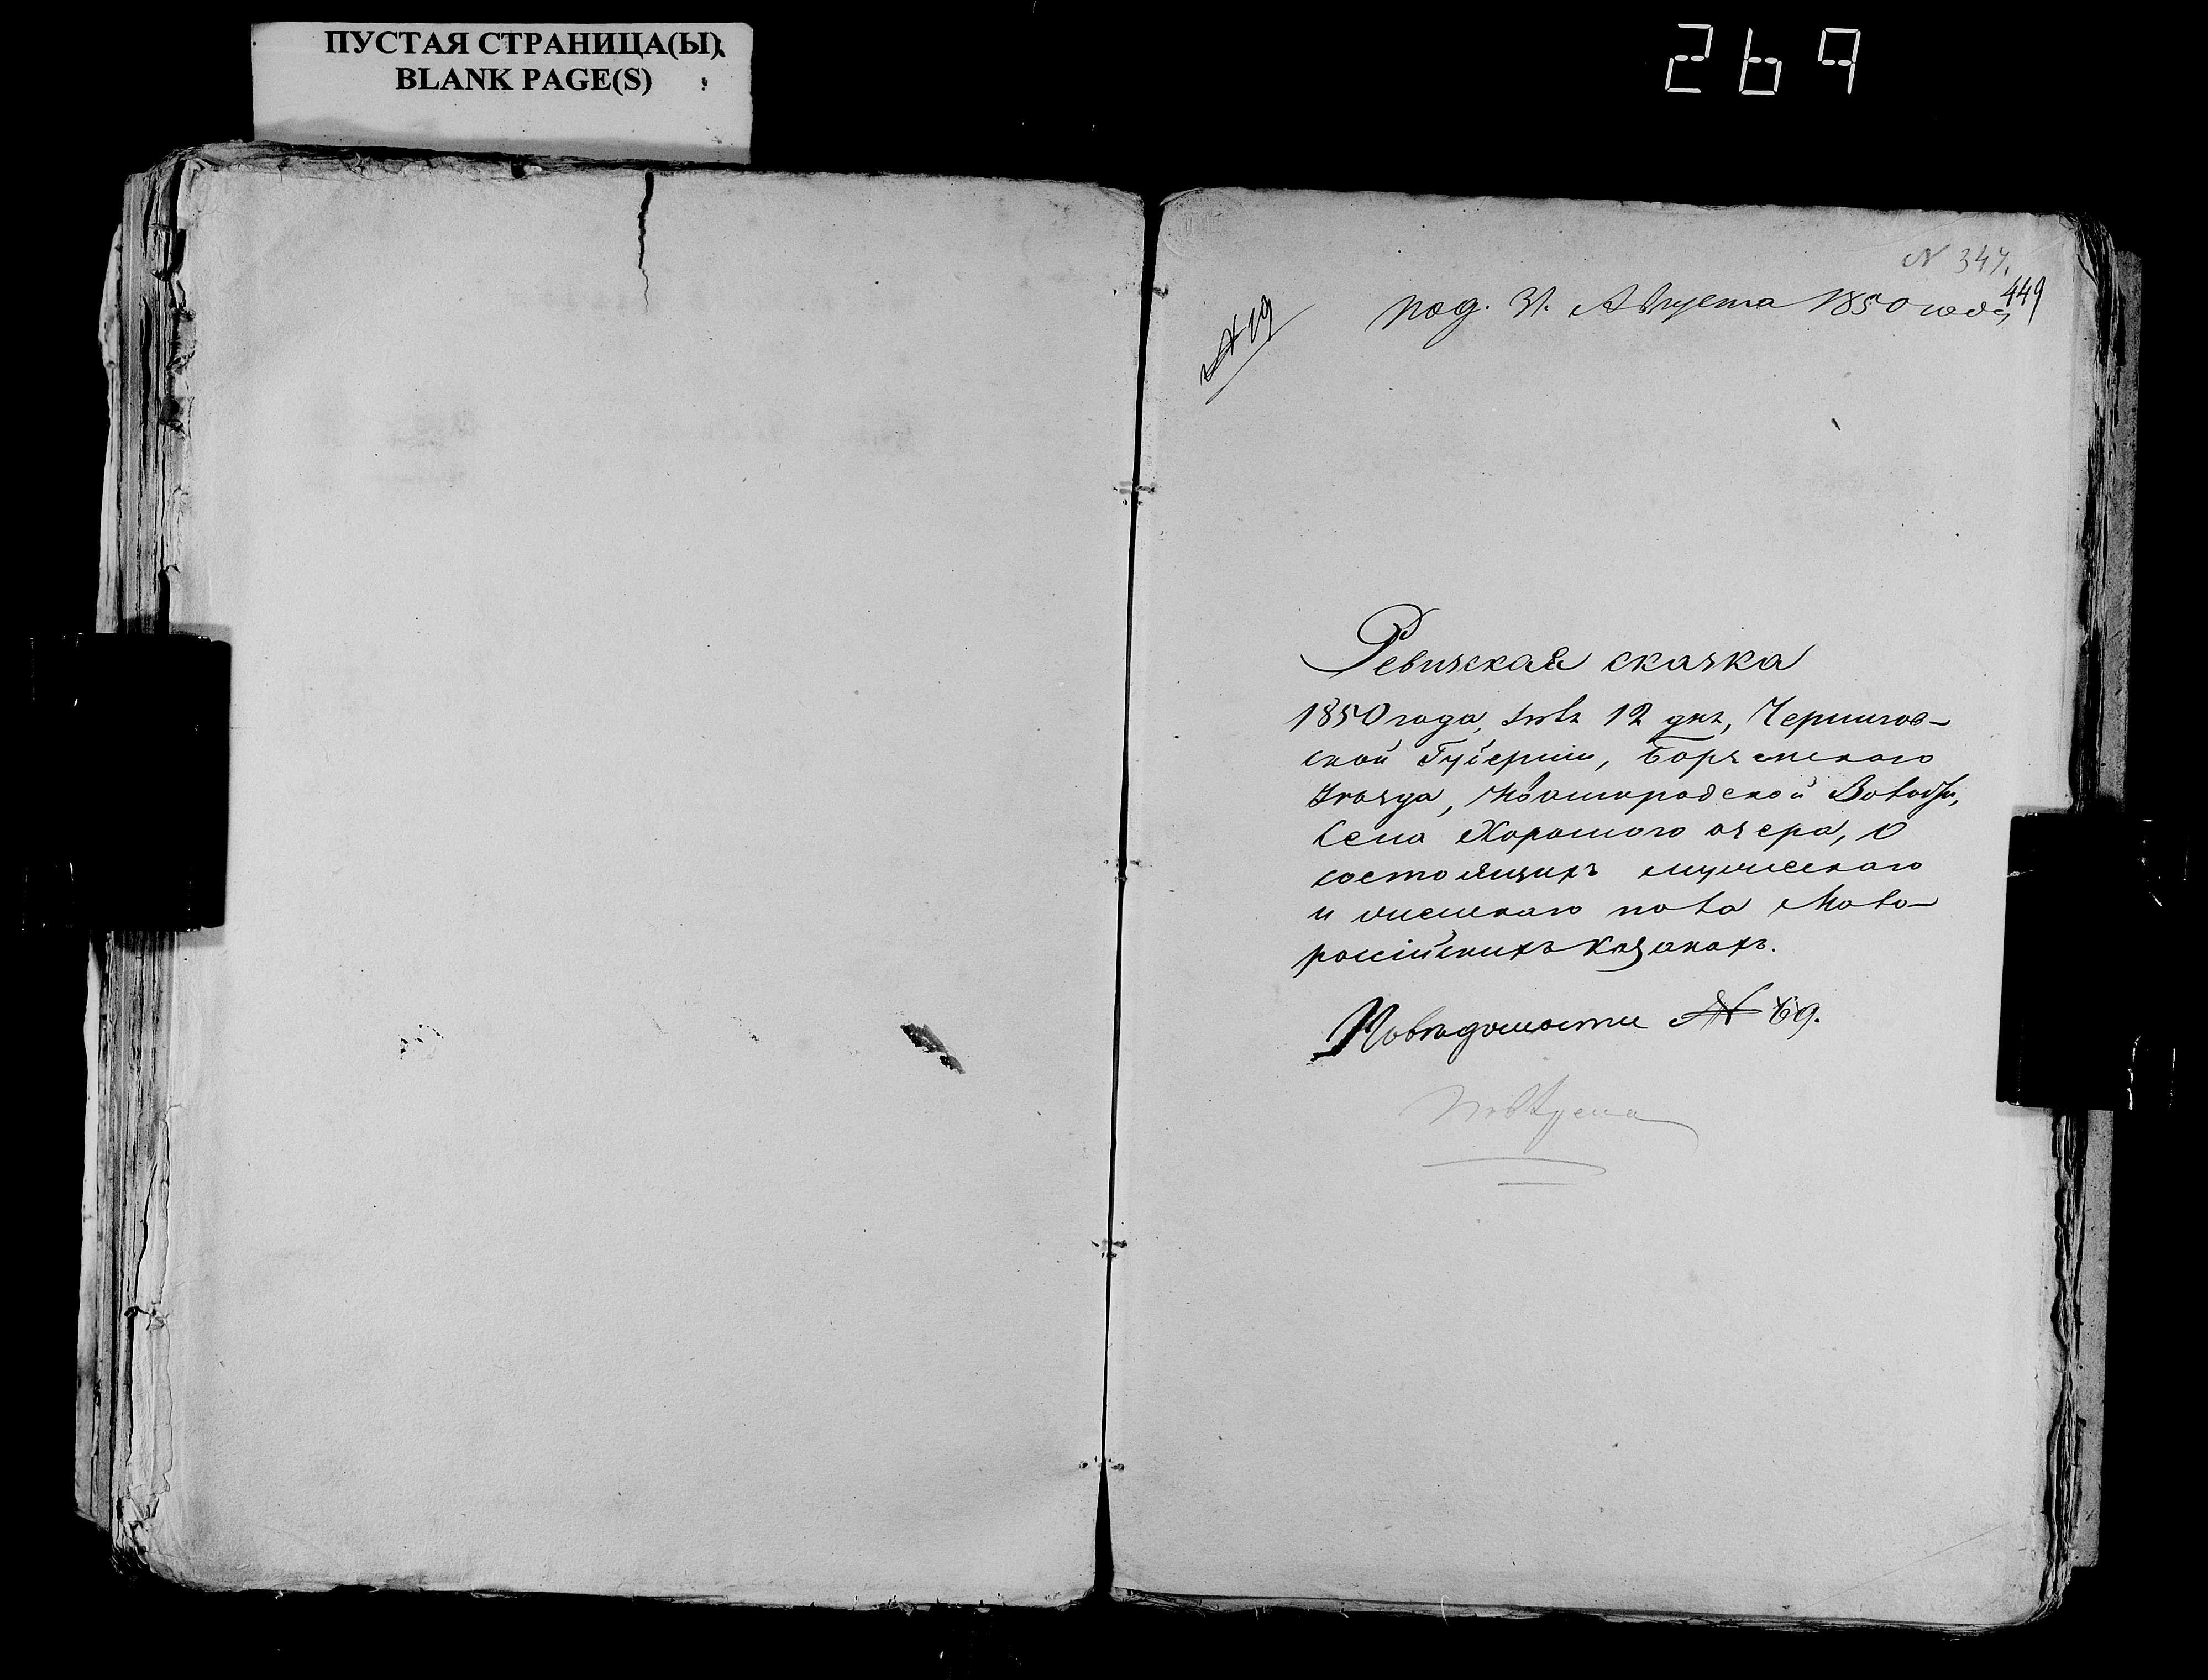 ПУСТАЯ СТРАНИЦА(Ы)
BLANK PAGE(S)
269
N 347.
449
под. 31. Августа 1850 года
№ 19
Ревизская сказка
1850 года, 12 дня, Чернигов-
ской Губерніи, Борзенскаго
Уѣзда, Ивангородской Волости,
Села Хорошого озера, О
состоящихъ мужескаго
и женскаго пола Мало-
россійскихъ Козакахъ.
По вѣдомости № 69.